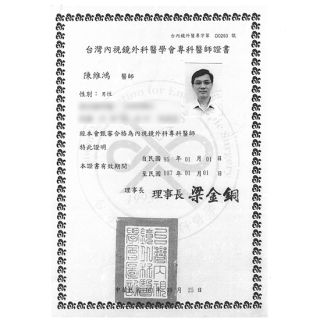 台內視鏡外醫專字第 D0263 號
台灣內視鏡外科醫學會專科醫師證書
陳維鴻 醫師
性別：男性
經本會甄審合格為內視鏡外科專科醫師
特此證明
本證書有效期間
自民國 95 年 01 月 01 日
至民國 107 年 01 月 01 日
理事長 理事長 梁金銅